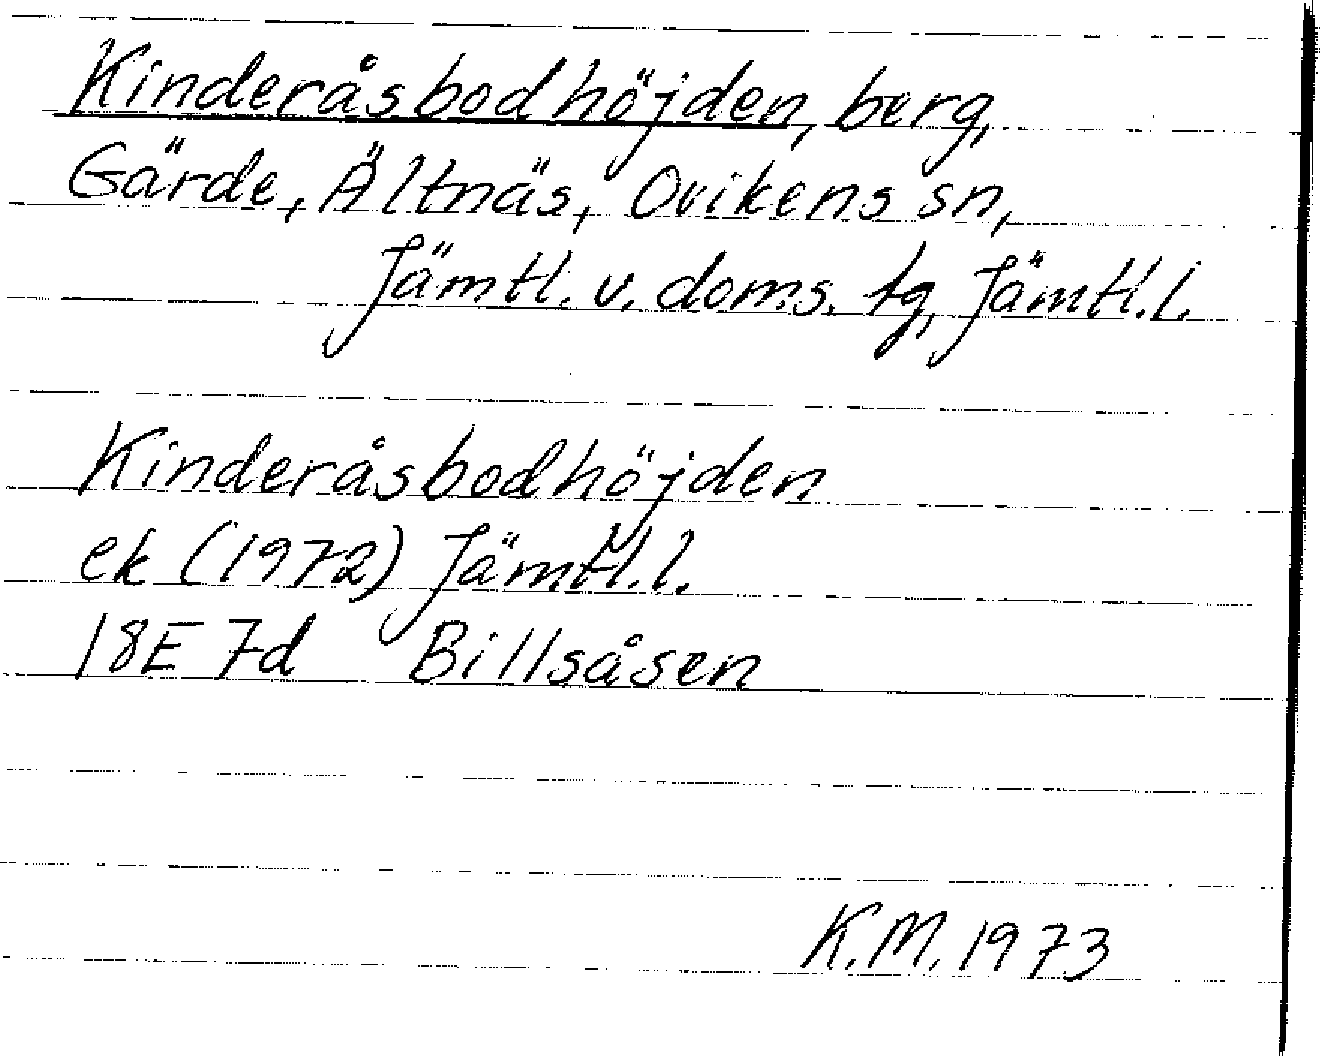 Kinderåsbodhöjden, berg,
Gärde, Ältnäs, Ovikens sn,
Jämtl. v. doms. tg, Jämtl. l.
Kinderåsbodhöjden
ek (1972) Jämtl. l.
18E 7d Billsåsen
K.M. 1973